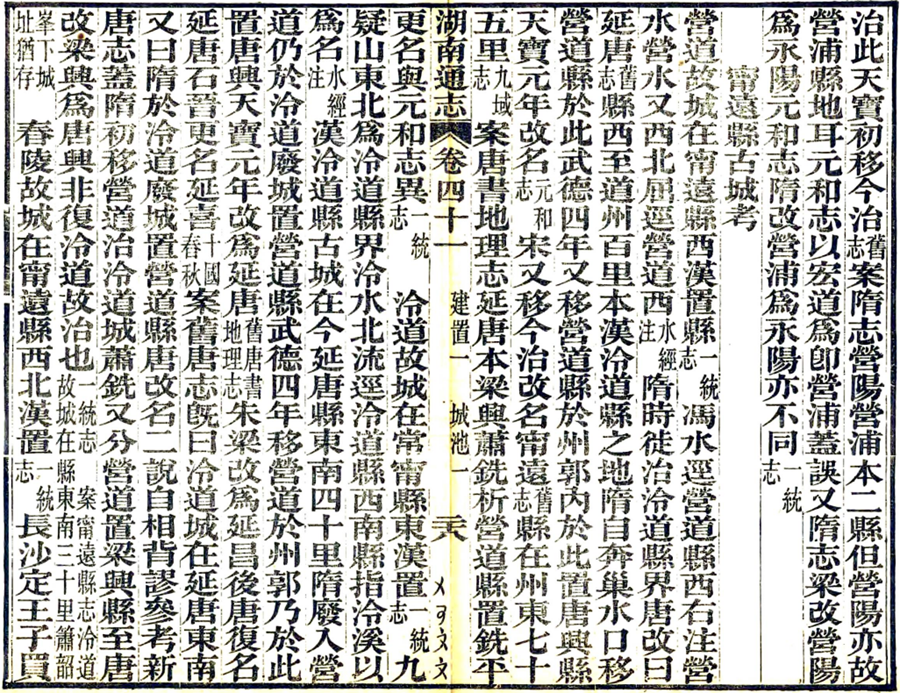 治此天寶初移今治舊志案隋志營陽營浦本二縣但營陽亦故
營浦縣地耳元和志以宏道爲卽營浦蓋誤又隋志梁改營陽
爲永陽元和志隋改營浦爲永陽亦不同一統志
甯遠縣古城考
營道故城在甯遠縣西漢置縣一統志馮水逕營道縣西右注營
水營水又西北屈逕營道西水經注隋時徙治泠道縣界唐改曰
延唐舊志縣西至道州百里本漢泠道縣之地隋自奔巢水口移
營道縣於此武德四年又移營道縣於州郭內於此置唐興縣
天寶元年改名元和志宋又移今治改名甯遠舊志縣在州東七十
五里九域志案唐書地理志延唐本梁興蕭銑析營道縣置銑平
湖南通志 卷四十一 建置一 城池一 二六
更名與元和志異一統志 泠道故城在常甯縣東漢置一統志九
疑山東北爲泠道縣界泠水北流逕泠道縣西南縣指泠溪以
爲名水經注漢泠道縣古城在今延唐縣東南四十里隋廢入營
道仍於泠道廢城置營道縣武德四年移營道於州郭乃於此
置唐興天寶元年改爲延唐舊唐書地理志朱梁改爲延昌後唐復名
延唐石晉更名延喜十國春秋案舊唐志旣曰泠道城在延唐東南
又曰隋於泠道廢城置營道縣唐改名二說自相背謬參考新
唐志蓋隋初移營道治泠道城蕭銑又分營道置梁興縣至唐
改梁興爲唐興非復泠道故治也一統志 案甯遠縣志泠道故城在縣東南三十里蕭韶
峯下城址猶存 舂陵故城在甯遠縣西北漢置一統志長沙定王子買